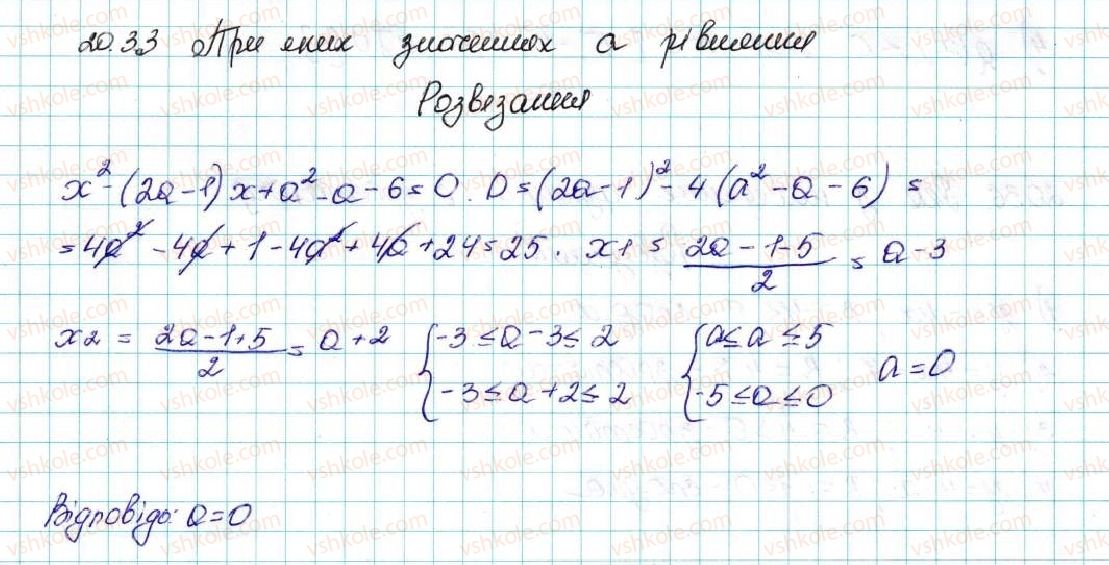 20.33 При яких значеннях a рівняння
Розвезання
x² - (2a-1)x + a² - a - 6 = 0. D = (2a-1)² - 4(a² - a - 6) =
= 4a² - 4a + 1 - 4a² + 4a + 24 = 25. x1 = (2a-1-5)/2 = a-3
x2 = (2a-1+5)/2 = a+2 { -3 ≤ a-3 ≤ 2 { a ≤ a ≤ 5 a = 0
-3 ≤ a+2 ≤ 2 -5 ≤ a ≤ 0
Відповідь: a=0
vshkole.com